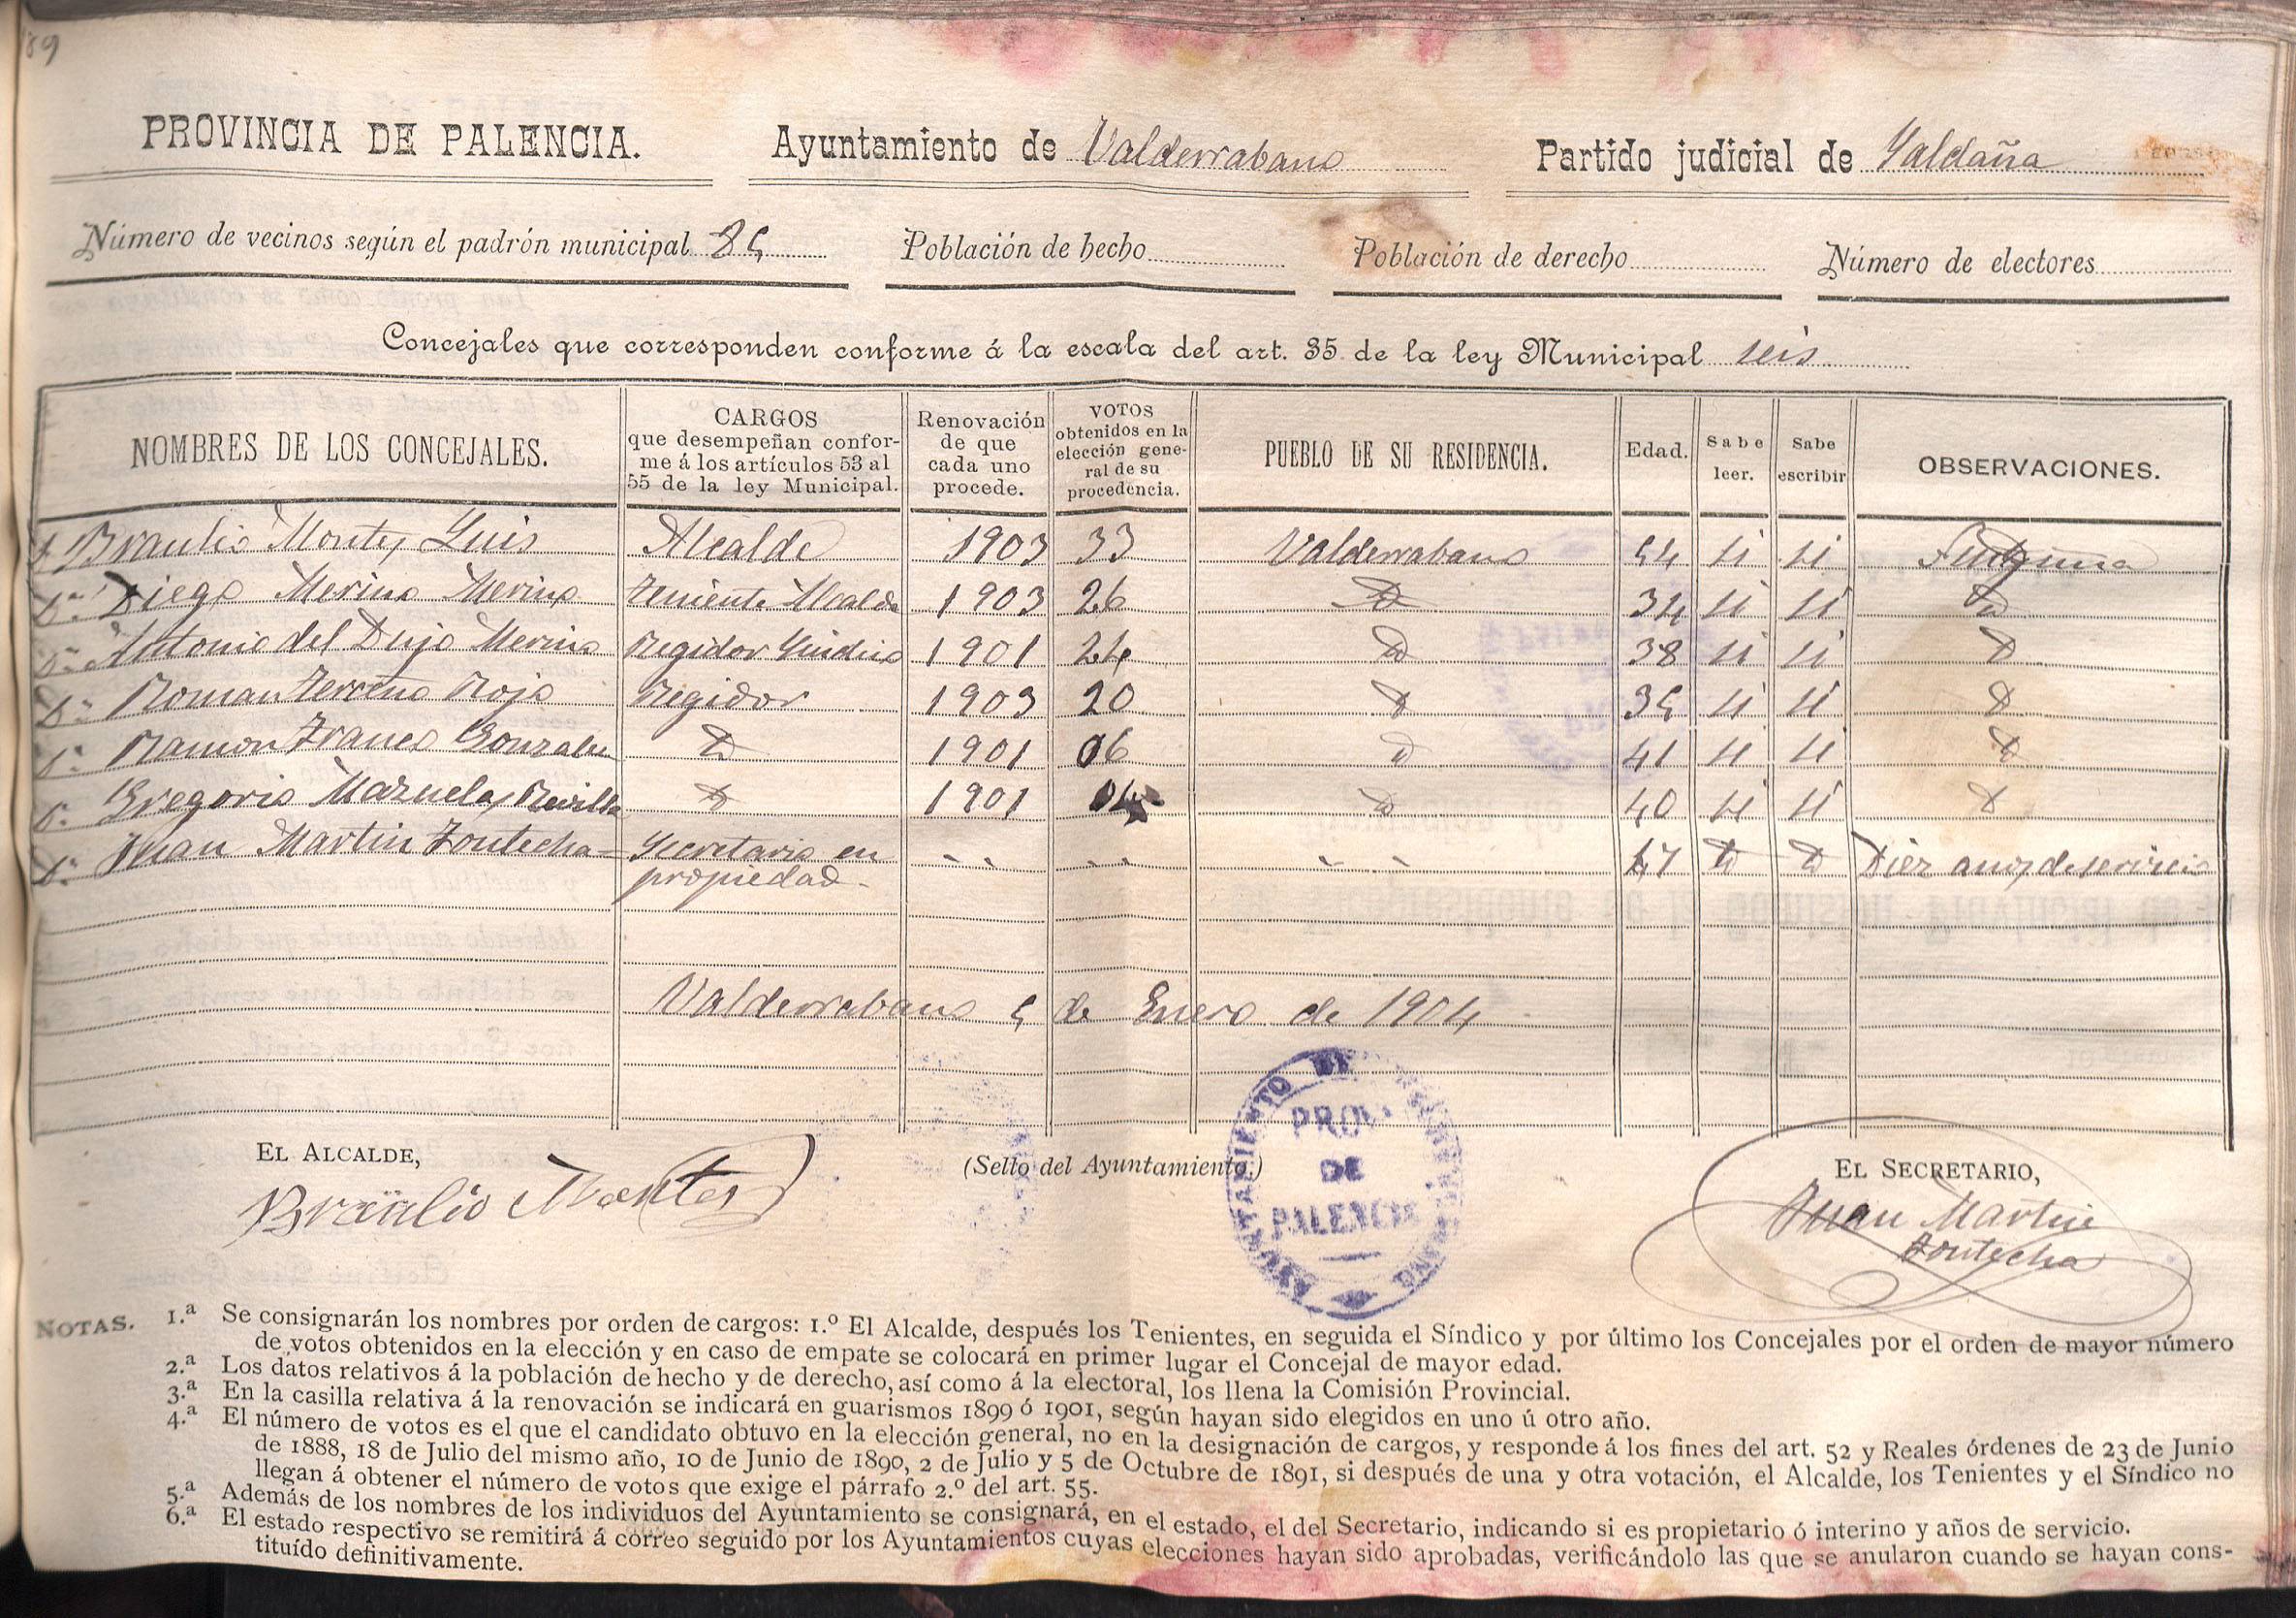 189
PROVINCIA DE PALENCIA. Ayuntamiento de Valderrabano Partido judicial de Saldaña
Número de vecinos según el padrón municipal 85 Población de hecho Población de derecho Número de electores
Concejales que corresponden conforme á la escala del art. 35 de la ley Municipal seis
NOMBRES DE LOS CONCEJALES. CARGOS que desempeñan conforme á los artículos 53 al 55 de la ley Municipal. Renovación de que cada uno procede. VOTOS obtenidos en la elección general de su procedencia. PUEBLO DE SU RESIDENCIA. Edad. Sabe leer. Sabe escribir OBSERVACIONES.
Braulio Montes Luis Alcalde 1903 33 Valderrabano 54 si si
Dn. Diego Merino Merino Teniente Alcalde 1903 26 D 34 si si D
Dn. Antonio del Dujo Merino Regidor Sindico 1901 24 D 38 si si D
Dn. Roman Terceño Rojo Regidor 1903 20 D 35 si si D
Dn. Ramon Franco Gonzalez D 1901 06 D 41 si si D
Dn. Gregorio Mazuelas Revilla D 1901 04 D 40 si si D
Dn. Juan Martin Fontecha = Secretario en - - - - - - 47 D D Diez años de servicio
propiedad -
Valderrabano 5 de Enero de 1904
EL ALCALDE,
Braulio Montes
(Sello del Ayuntamiento.)
AYUNTAMIENTO DE
PROV.
DE
PALENCIA
EL SECRETARIO,
Juan Martin
Fontecha
NOTAS. 1.ª Se consignarán los nombres por orden de cargos: 1.º El Alcalde, después los Tenientes, en seguida el Síndico y por último los Concejales por el orden de mayor número
de votos obtenidos en la elección y en caso de empate se colocará en primer lugar el Concejal de mayor edad.
2.ª Los datos relativos á la población de hecho y de derecho, así como á la electoral, los llena la Comisión Provincial.
3.ª En la casilla relativa á la renovación se indicará en guarismos 1899 ó 1901, según hayan sido elegidos en uno ú otro año.
4.ª El número de votos es el que el candidato obtuvo en la elección general, no en la designación de cargos, y responde á los fines del art. 52 y Reales órdenes de 23 de Junio
de 1888, 18 de Julio del mismo año, 10 de Junio de 1890, 2 de Julio y 5 de Octubre de 1891, si después de una y otra votación, el Alcalde, los Tenientes y el Síndico no
llegan á obtener el número de votos que exige el párrafo 2.º del art. 55.
5.ª Además de los nombres de los individuos del Ayuntamiento se consignará, en el estado, el del Secretario, indicando si es propietario ó interino y años de servicio.
6.ª El estado respectivo se remitirá á correo seguido por los Ayuntamientos cuyas elecciones hayan sido aprobadas, verificándolo las que se anularon cuando se hayan cons-
tituído definitivamente.